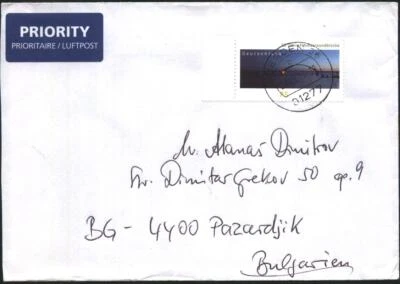 PRIORITY
PRIORITAIRE / LUFTPOST
Deutschland
01277
Mr. Atanas Dimitrov
Str. Dimitar Grekov 50 ap. 9
BG - 4400 Pazardjik
Bulgarien